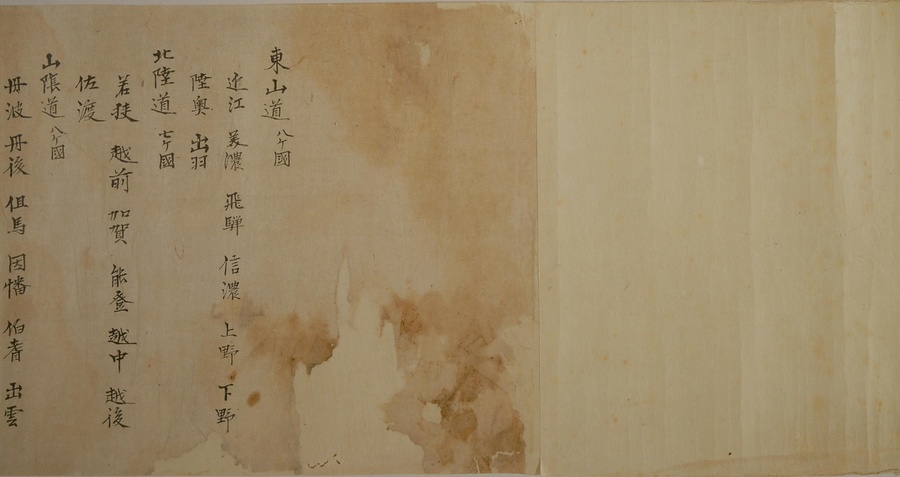 東山道 八ケ國
近江 美濃 飛騨 信濃 上野 下野
陸奥 出羽
北陸道 七ケ國
若狭 越前 加賀 能登 越中 越後
佐渡
山陰道 八ケ國
丹波 丹後 但馬 因幡 伯耆 出雲